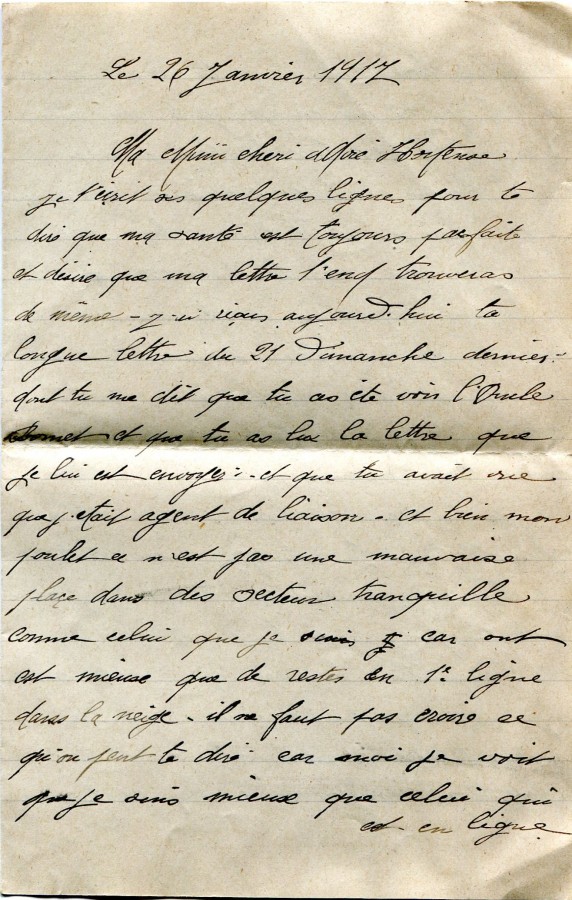 Le 26 Janvier 1917
Ma Mimi cheri Hortense
je t'ecrit ses quelques lignes pour te
dire que ma santé est toujours parfaite
et désire que ma lettre t'en trouveras
de même - j-ai reçus aujourd-hui ta
longue lettre du 21 Dimanche dernier-
dont tu me dit que tu as été voir l'Oncle
et que tu as lux la lettre que
je lui est envoyer - et que tu avait vue
que j'etait agent de liaison - et bien mon
poulet ce n'est pas une mauvaise
place dans des secteur tranquille
comme celui que je suis car ont
est mieuse que de restes en 1e ligne
dans la neige - il ne faut pas croire se
qu'on peut te dire car moi je voit
que je suis mieuse que celui qui
est en ligne